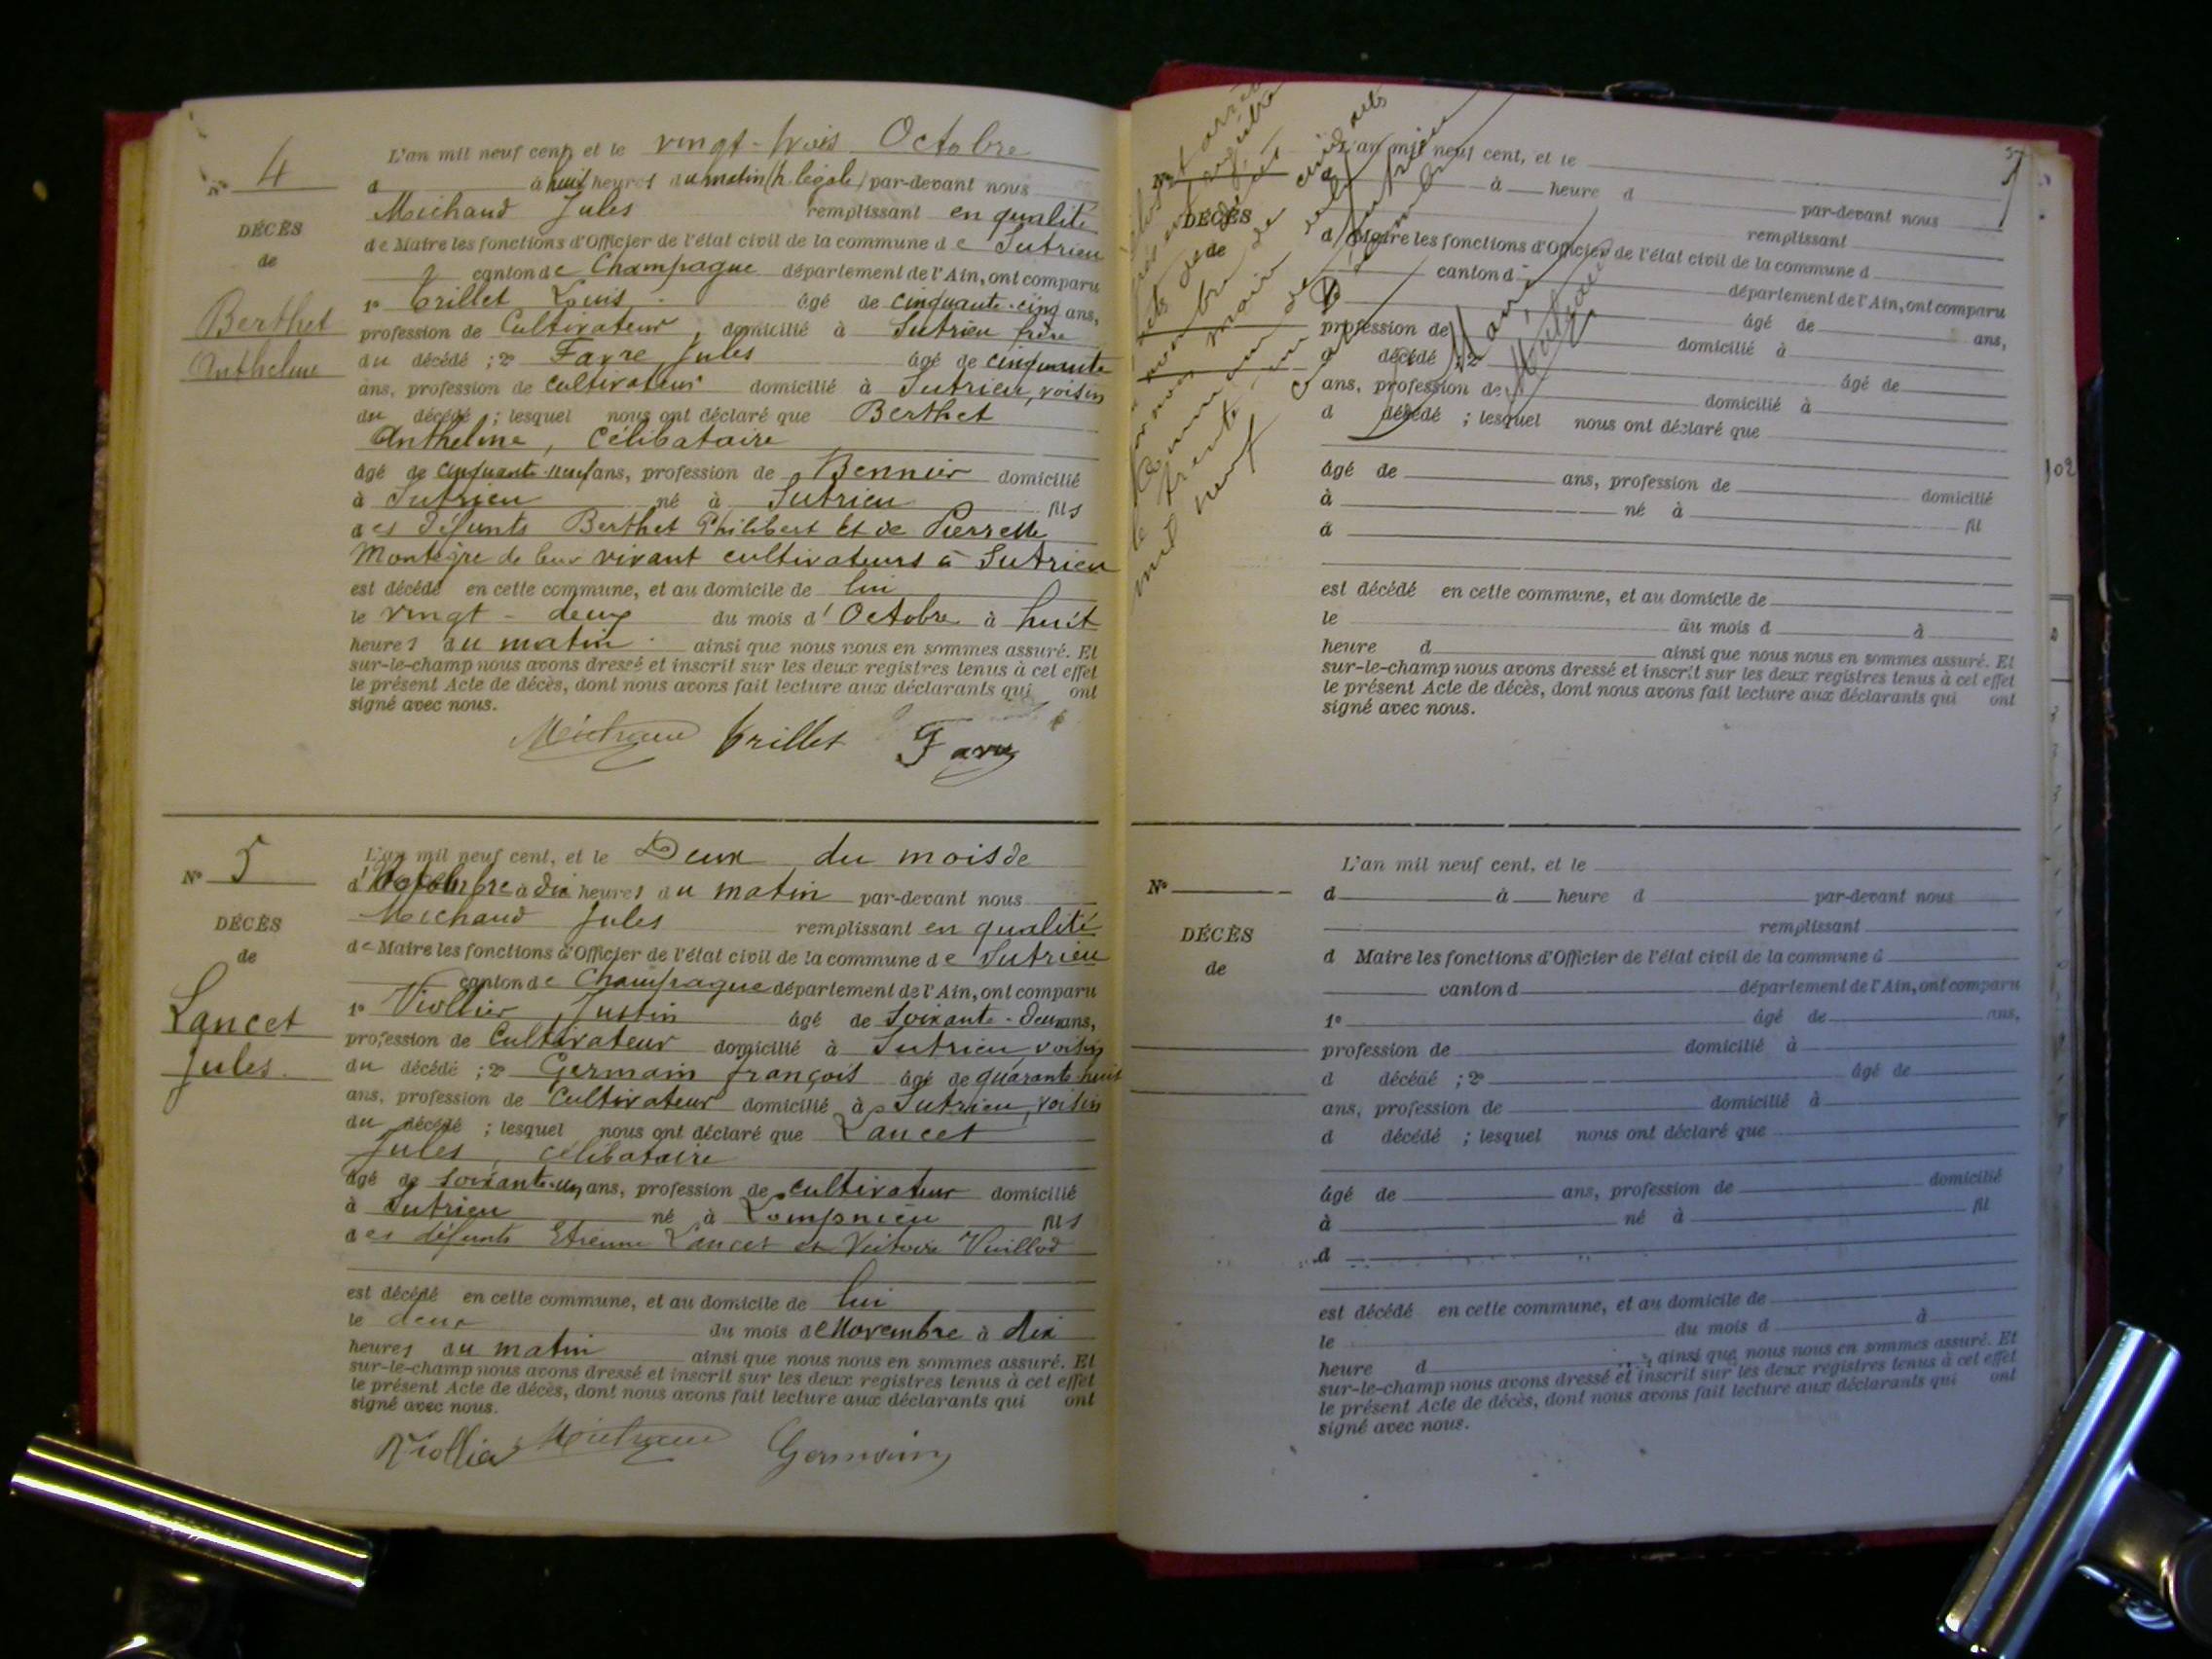 N° 4
DÉCÈS
de
Berthet
Anthelme
L'an mil neuf cent, et le vingt-trois Octobre
d à huit heures du matin (h. légale) par-devant nous
Michaud Jules remplissant en qualité
de Maire les fonctions d'Officier de l'état civil de la commune de Sutrieu
canton de Champagne département de l'Ain, ont comparu
1° Trillet Louis âgé de cinquante-cinq ans,
profession de Cultivateur, domicilié à Sutrieu frère
du décédé ; 2° Favre Jules âgé de cinquante
ans, profession de cultivateur domicilié à Sutrieu, voisin
du décédé ; lesquel nous ont déclaré que Berthet
Anthelme, célibataire
âgé de cinquante-neuf ans, profession de Bennier domicilié
à Sutrieu né à Sutrieu fils
des défunts Berthet Philibert et de Pierrette
Montègre de leur vivant cultivateurs à Sutrieu
est décédé en cette commune, et au domicile de lui
le vingt-deux du mois d'Octobre à huit
heures du matin ainsi que nous nous en sommes assuré. Et
sur-le-champ nous avons dressé et inscrit sur les deux registres tenus à cet effet
le présent Acte de décès, dont nous avons fait lecture aux déclarants qui ont
signé avec nous.
Michaud Trillet Favre
N° 5
DÉCÈS
de
Lancet
Jules
L'an mil neuf cent, et le Deux du mois de
à dix heures du matin par-devant nous
Michaud Jules remplissant en qualité
de Maire les fonctions d'Officier de l'état civil de la commune de Sutrieu
canton de Champagne département de l'Ain, ont comparu
1° Viollier Justin âgé de soixante-deux ans,
profession de Cultivateur domicilié à Sutrieu, voisin
du décédé ; 2° Germain françois âgé de quarante-huit
ans, profession de Cultivateur domicilié à Sutrieu, voisin
du décédé ; lesquel nous ont déclaré que Lancet
Jules, célibataire
âgé de soixante-un ans, profession de cultivateur domicilié
à Sutrieu né à Lompnieu fils
des défunts Etienne Lancet et Victoire Vuillod
est décédé en cette commune, et au domicile de lui
le deux du mois de Novembre à dix
heures du matin ainsi que nous nous en sommes assuré. Et
sur-le-champ nous avons dressé et inscrit sur les deux registres tenus à cet effet
le présent Acte de décès, dont nous avons fait lecture aux déclarants qui ont
signé avec nous.
Viollier Michaud Germain
DÉCÈS
de
L'an mil neuf cent, et le
à heure d par-devant nous
remplissant
d Maire les fonctions d'Officier de l'état civil de la commune d
canton d département de l'Ain, ont comparu
âgé de ans,
profession de domicilié à
décédé ; 2° âgé de
ans, profession de domicilié à
d décédé ; lesquel nous ont déclaré que
âgé de ans, profession de domicilié
à né à fil
d
est décédé en cette commune, et au domicile de
le du mois d à
heure d ainsi que nous nous en sommes assuré. Et
sur-le-champ nous avons dressé et inscrit sur les deux registres tenus à cet effet
le présent Acte de décès, dont nous avons fait lecture aux déclarants qui ont
signé avec nous.
N°
DÉCÈS
de
L'an mil neuf cent, et le
d à heure d par-devant nous
remplissant
d Maire les fonctions d'Officier de l'état civil de la commune d
canton d département de l'Ain, ont comparu
1° âgé de ans,
profession de domicilié à
d décédé ; 2° âgé de
ans, profession de domicilié à
d décédé ; lesquel nous ont déclaré que
âgé de ans, profession de domicilié
à né à fil
d
est décédé en cette commune, et au domicile de
le du mois d à
heure d ainsi que nous nous en sommes assuré. Et
sur-le-champ nous avons dressé et inscrit sur les deux registres tenus à cet effet
le présent Acte de décès, dont nous avons fait lecture aux déclarants qui ont
signé avec nous.